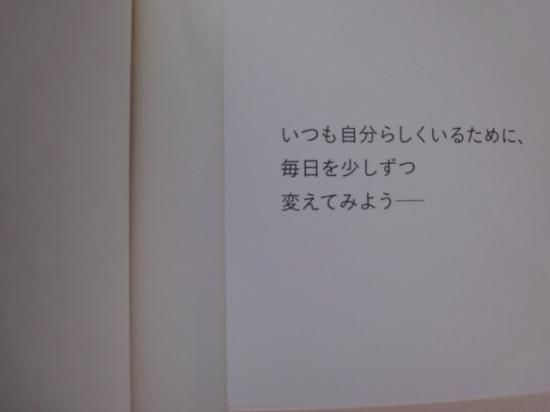 いつも自分らしくいるために、
毎日を少しずつ
変えてみよう──